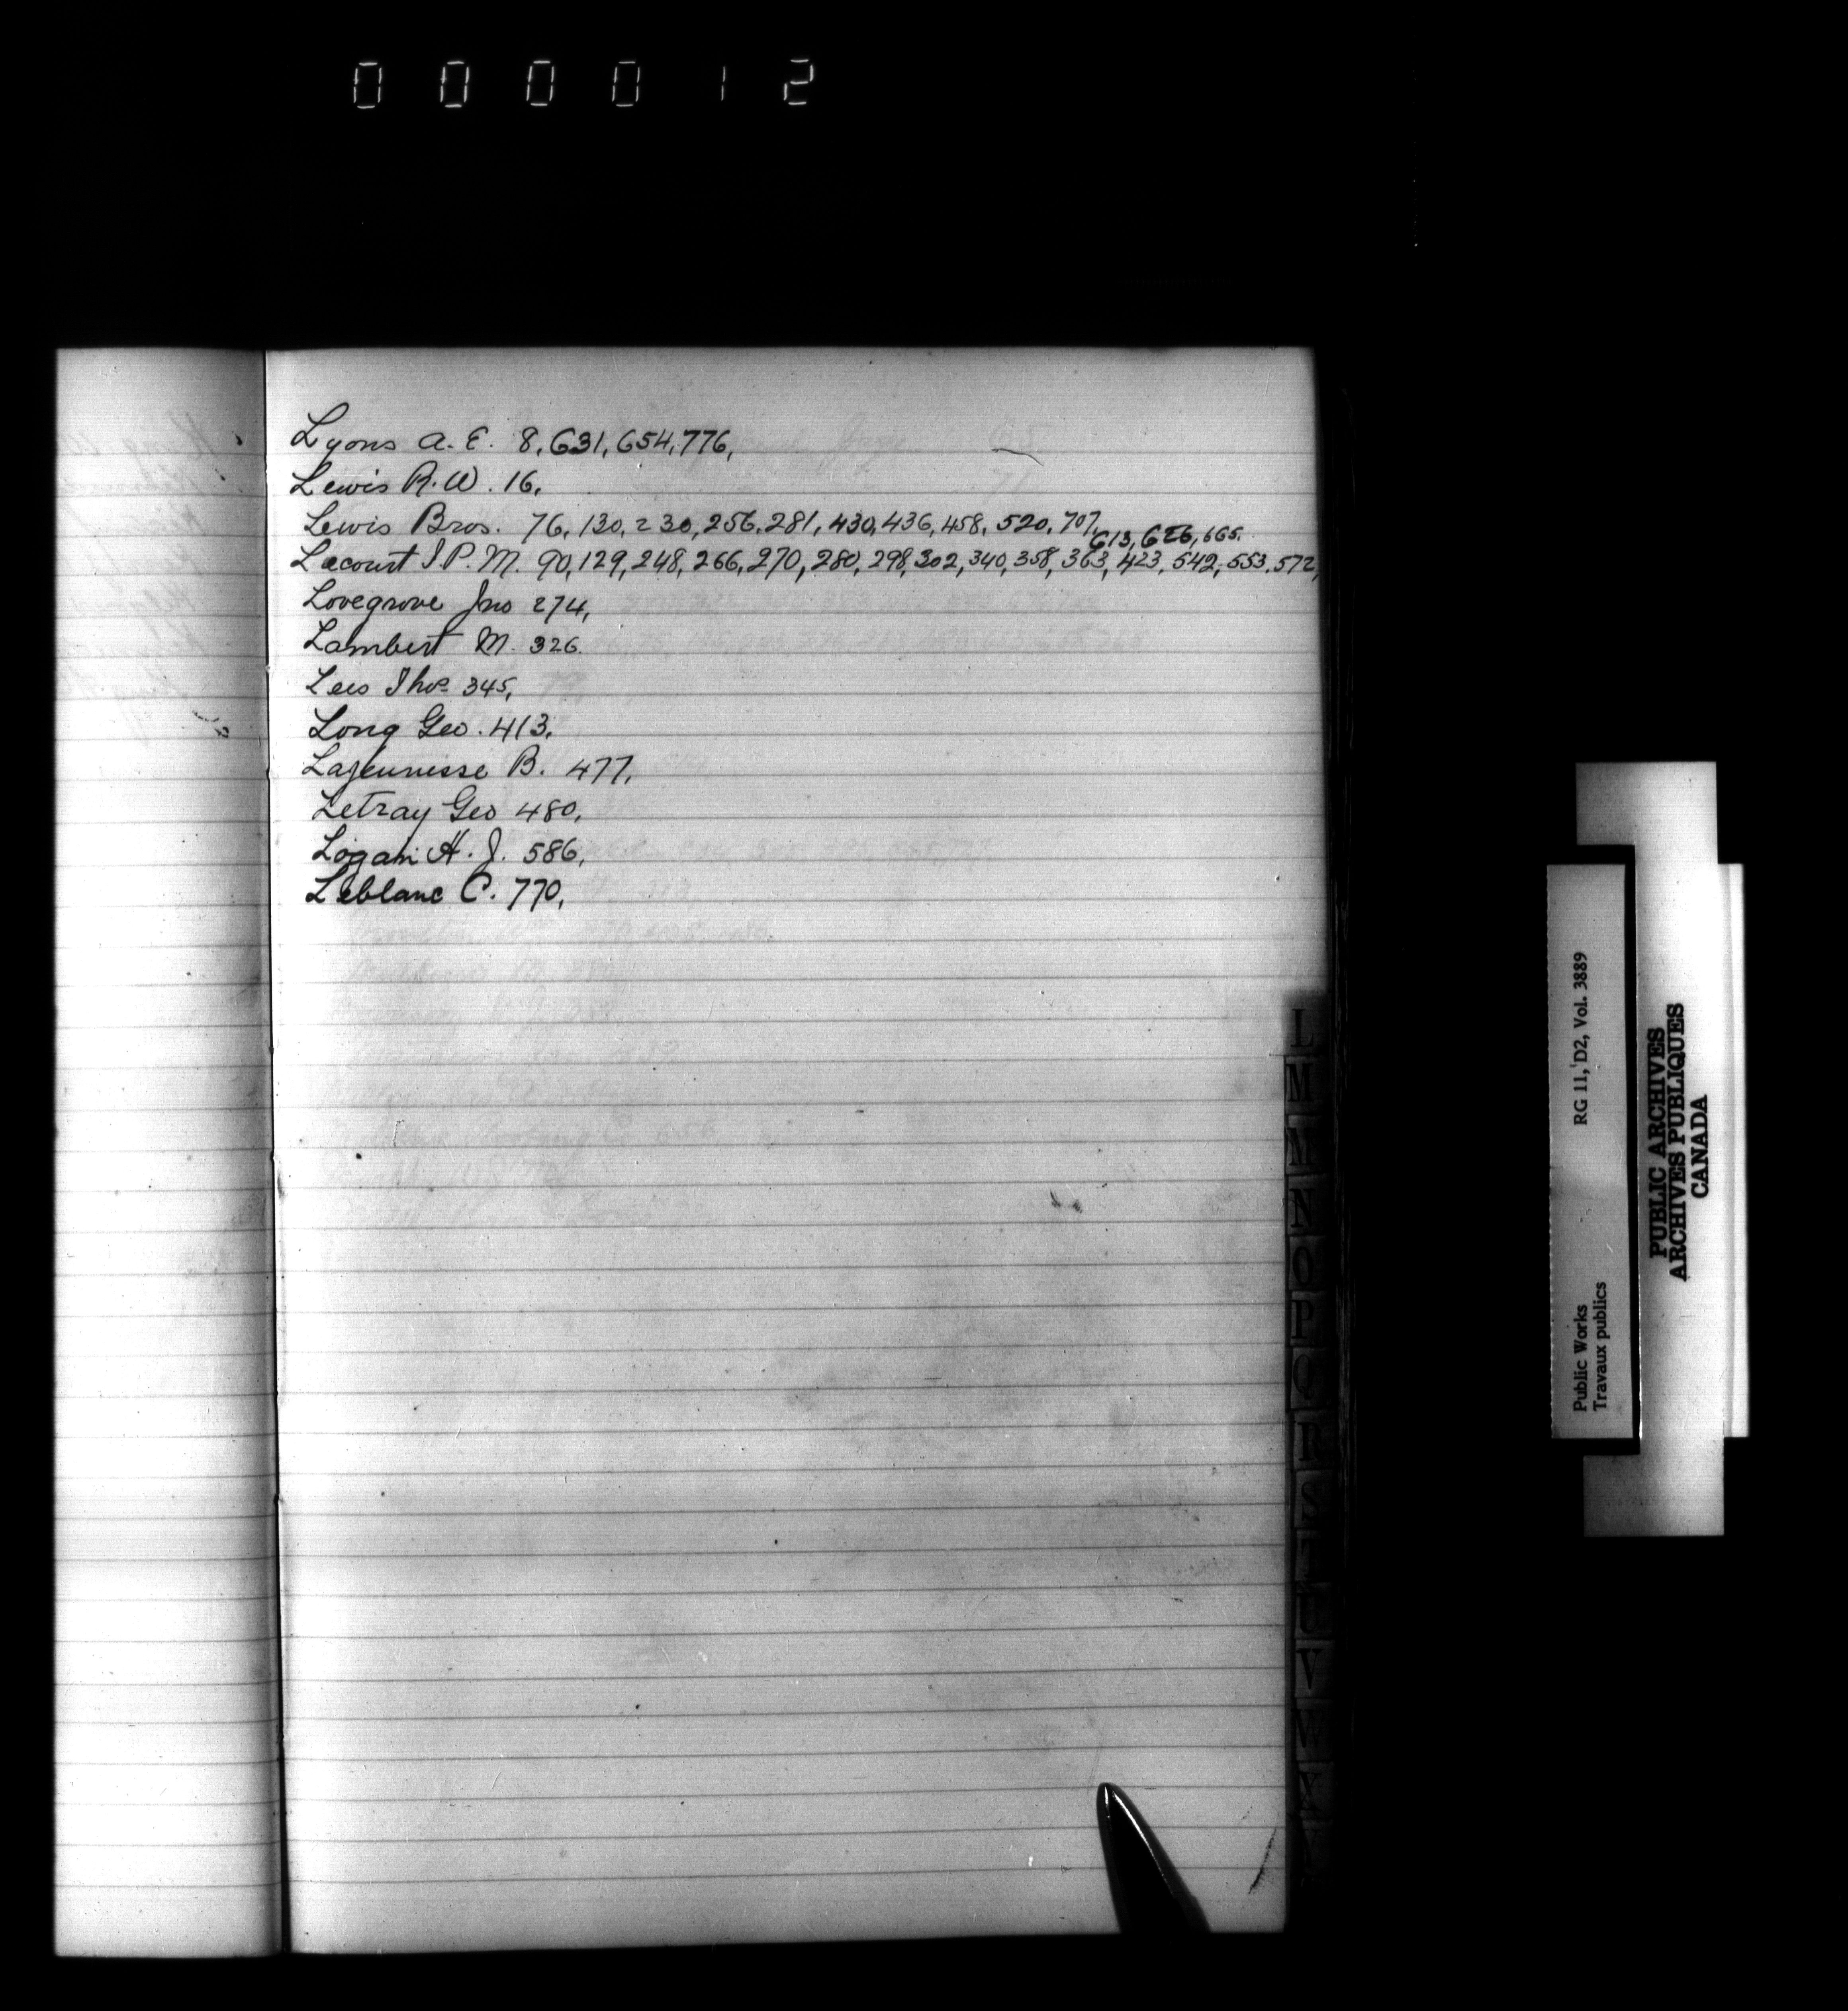 000012
Lyons A. E. 8, 631, 654, 776,
Lewis R. W. 16,
Lewis Bros. 76, 130, 230, 256, 281, 430, 436, 458, 520, 707,
613, 626, 665.
Lecourt J. P. M. 90, 129, 248, 266, 270, 280, 298, 302, 340, 358, 363, 423, 542, 553, 572,
Lovegrove Jno 274,
Lambert M. 326.
Lees Thos 345,
Long Geo. 413,
Lajeunesse B. 477,
Letray Geo 480,
Logan H. J. 586,
Leblanc C. 770,
L
M
M
N
O
P
Q
R
S
T
U
V
W
Public Works
Travaux publics
RG 11, D2, Vol. 3889
PUBLIC ARCHIVES
ARCHIVES PUBLIQUES
CANADA